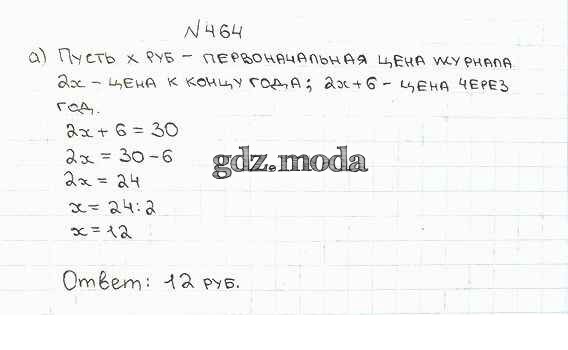 №464
а) Пусть x руб – первоначальная цена журнала.
2x – цена к концу года; 2x+6 – цена через
год.
2x + 6 = 30
2x = 30 – 6
gdz.moda
2x = 24
x = 24:2
x = 12
Ответ: 12 руб.